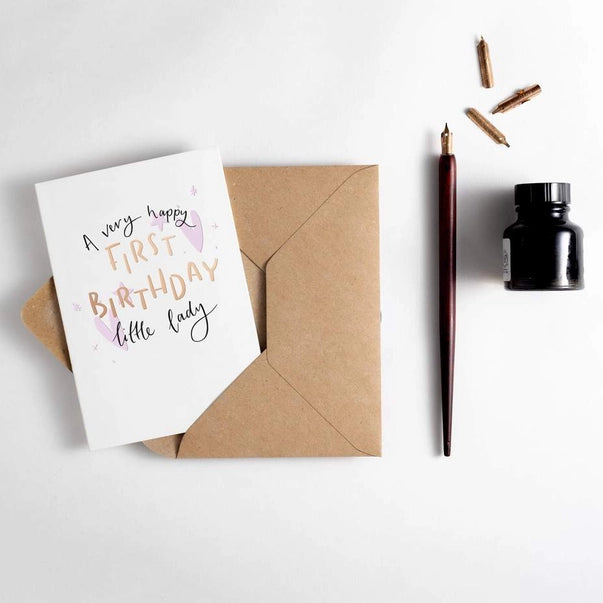 A very happy
FIRST
BIRTHDAY
little lady